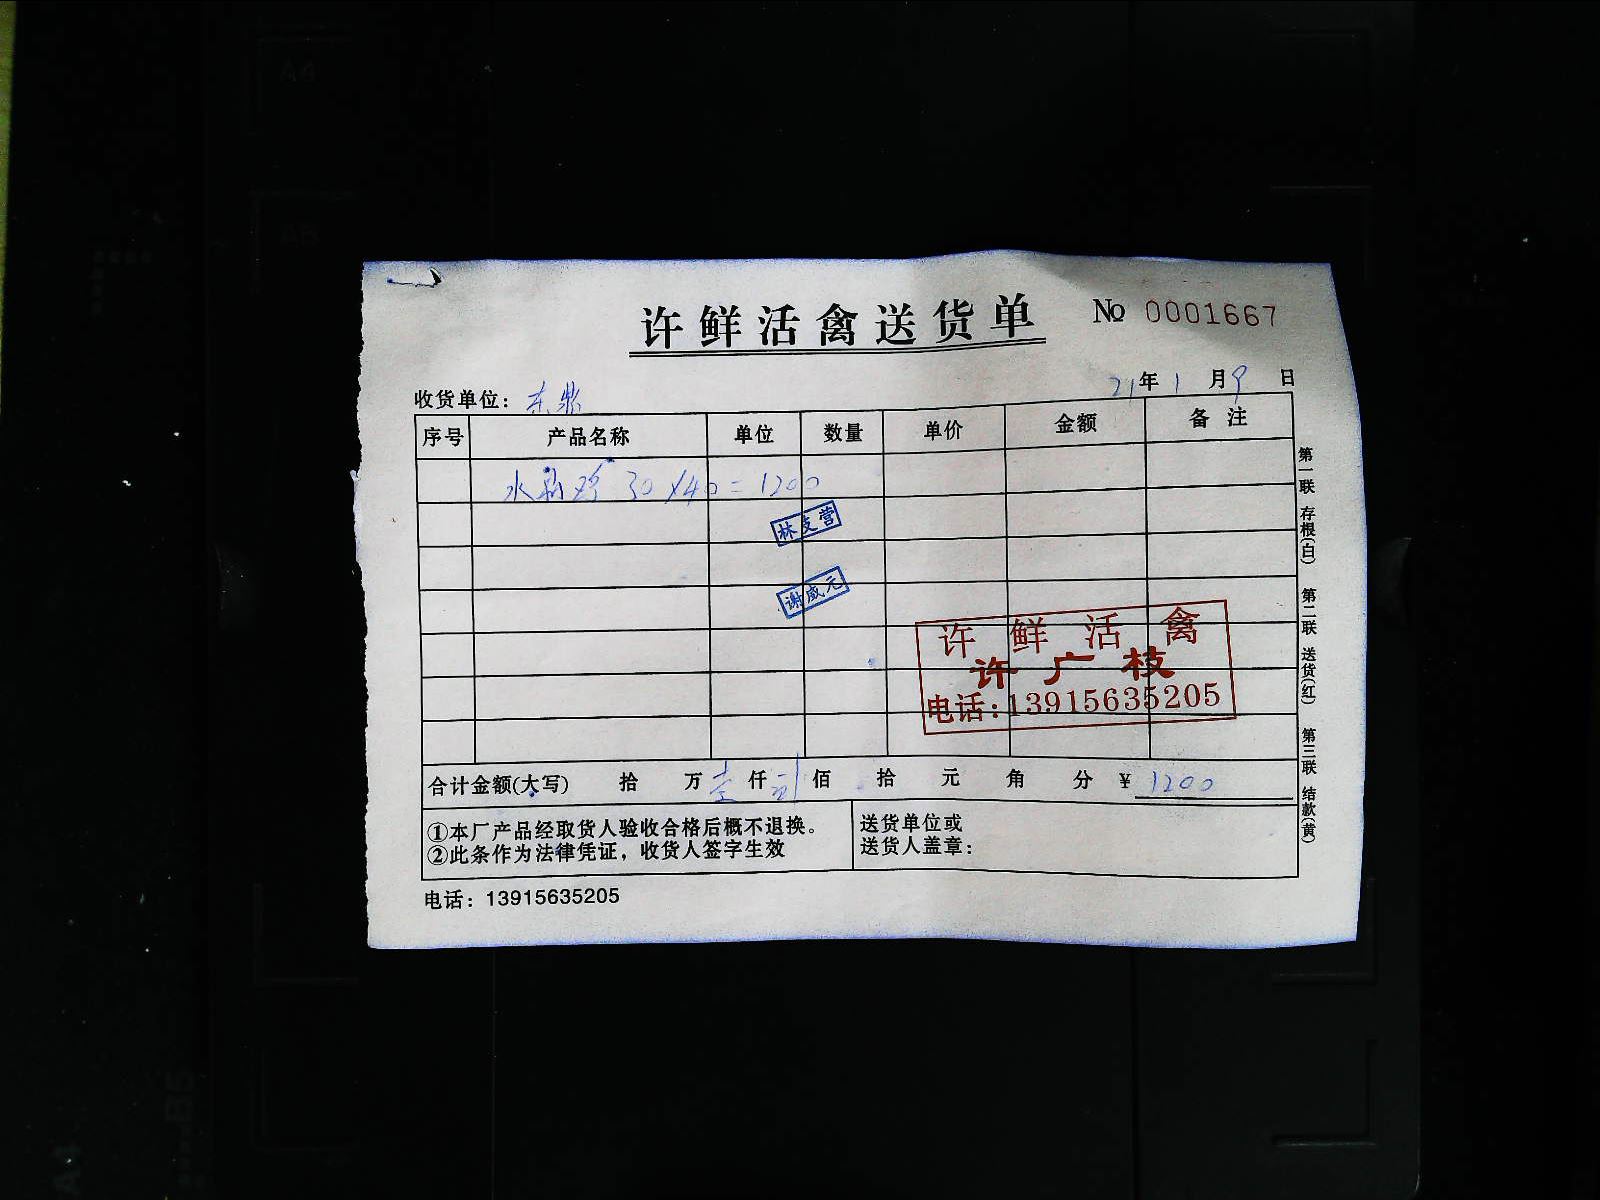 许鲜活禽送货单 № 0001667
21年1月9日
收货单位：东鼎
序号 产品名称 单位 数量 单价 金额 备注
水 鸡 30×40=1200
林支营
谢威元
许鲜活禽
许广枝
电话:13915635205
合计金额(大写) 拾 万壹仟贰佰 拾 元 角 分 ¥1200
①本厂产品经取货人验收合格后概不退换。
②此条作为法律凭证，收货人签字生效
送货单位或
送货人盖章：
电话：13915635205
第一联 存根(白) 第二联 送货(红) 第三联 结款(黄)
A4
B5
A4